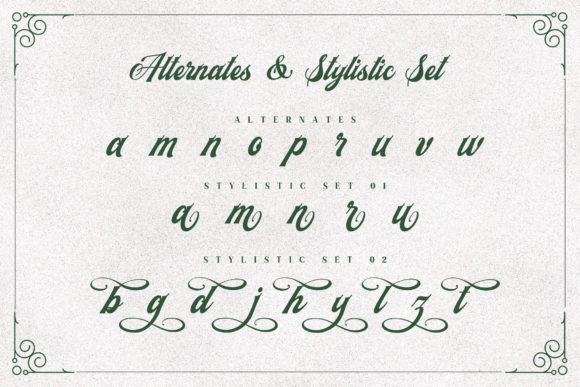 Alternates & Stylistic Set
ALTERNATES
a m n o p r u v w
STYLISTIC SET 01
a m n r u
STYLISTIC SET 02
b g d j h y l z t